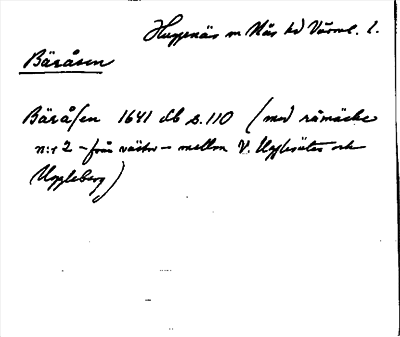 Huggenäs sn Näs hd Värml. l.
Bäråsen
Bäråsen 1641 db s. 110 (med råmärke
n:r 2 – från väster – mellan V. Ugglesäter och
Uggleberg)